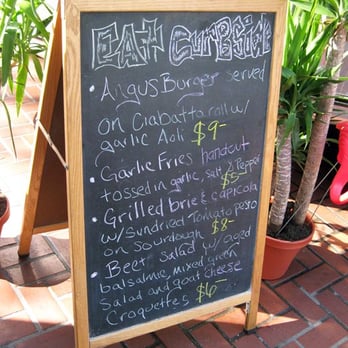 Eat Curbside
• Angus Burger served
on Ciabatta roll w/
garlic Aoli $9-
• Garlic Fries handcut
tossed in garlic, salt & Pepper
$5-
• Grilled brie & capicola
w/ Sundried Tomato pesto
on sourdough $8-
• Beet Salad w/ aged
balsamic, mixed green
Salad and goat cheese
Croquettes $6-